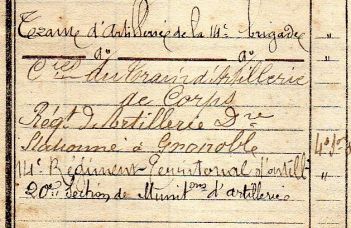 Trains d'Artillerie de la 14e brigade "
do do "
Cies du Train d'Artillerie
de Corps
Régt d'Artillerie Dre
Stationné à Grenoble
14e Régiment Territorial d'artill "
20e Section de Munitons d'artillerie